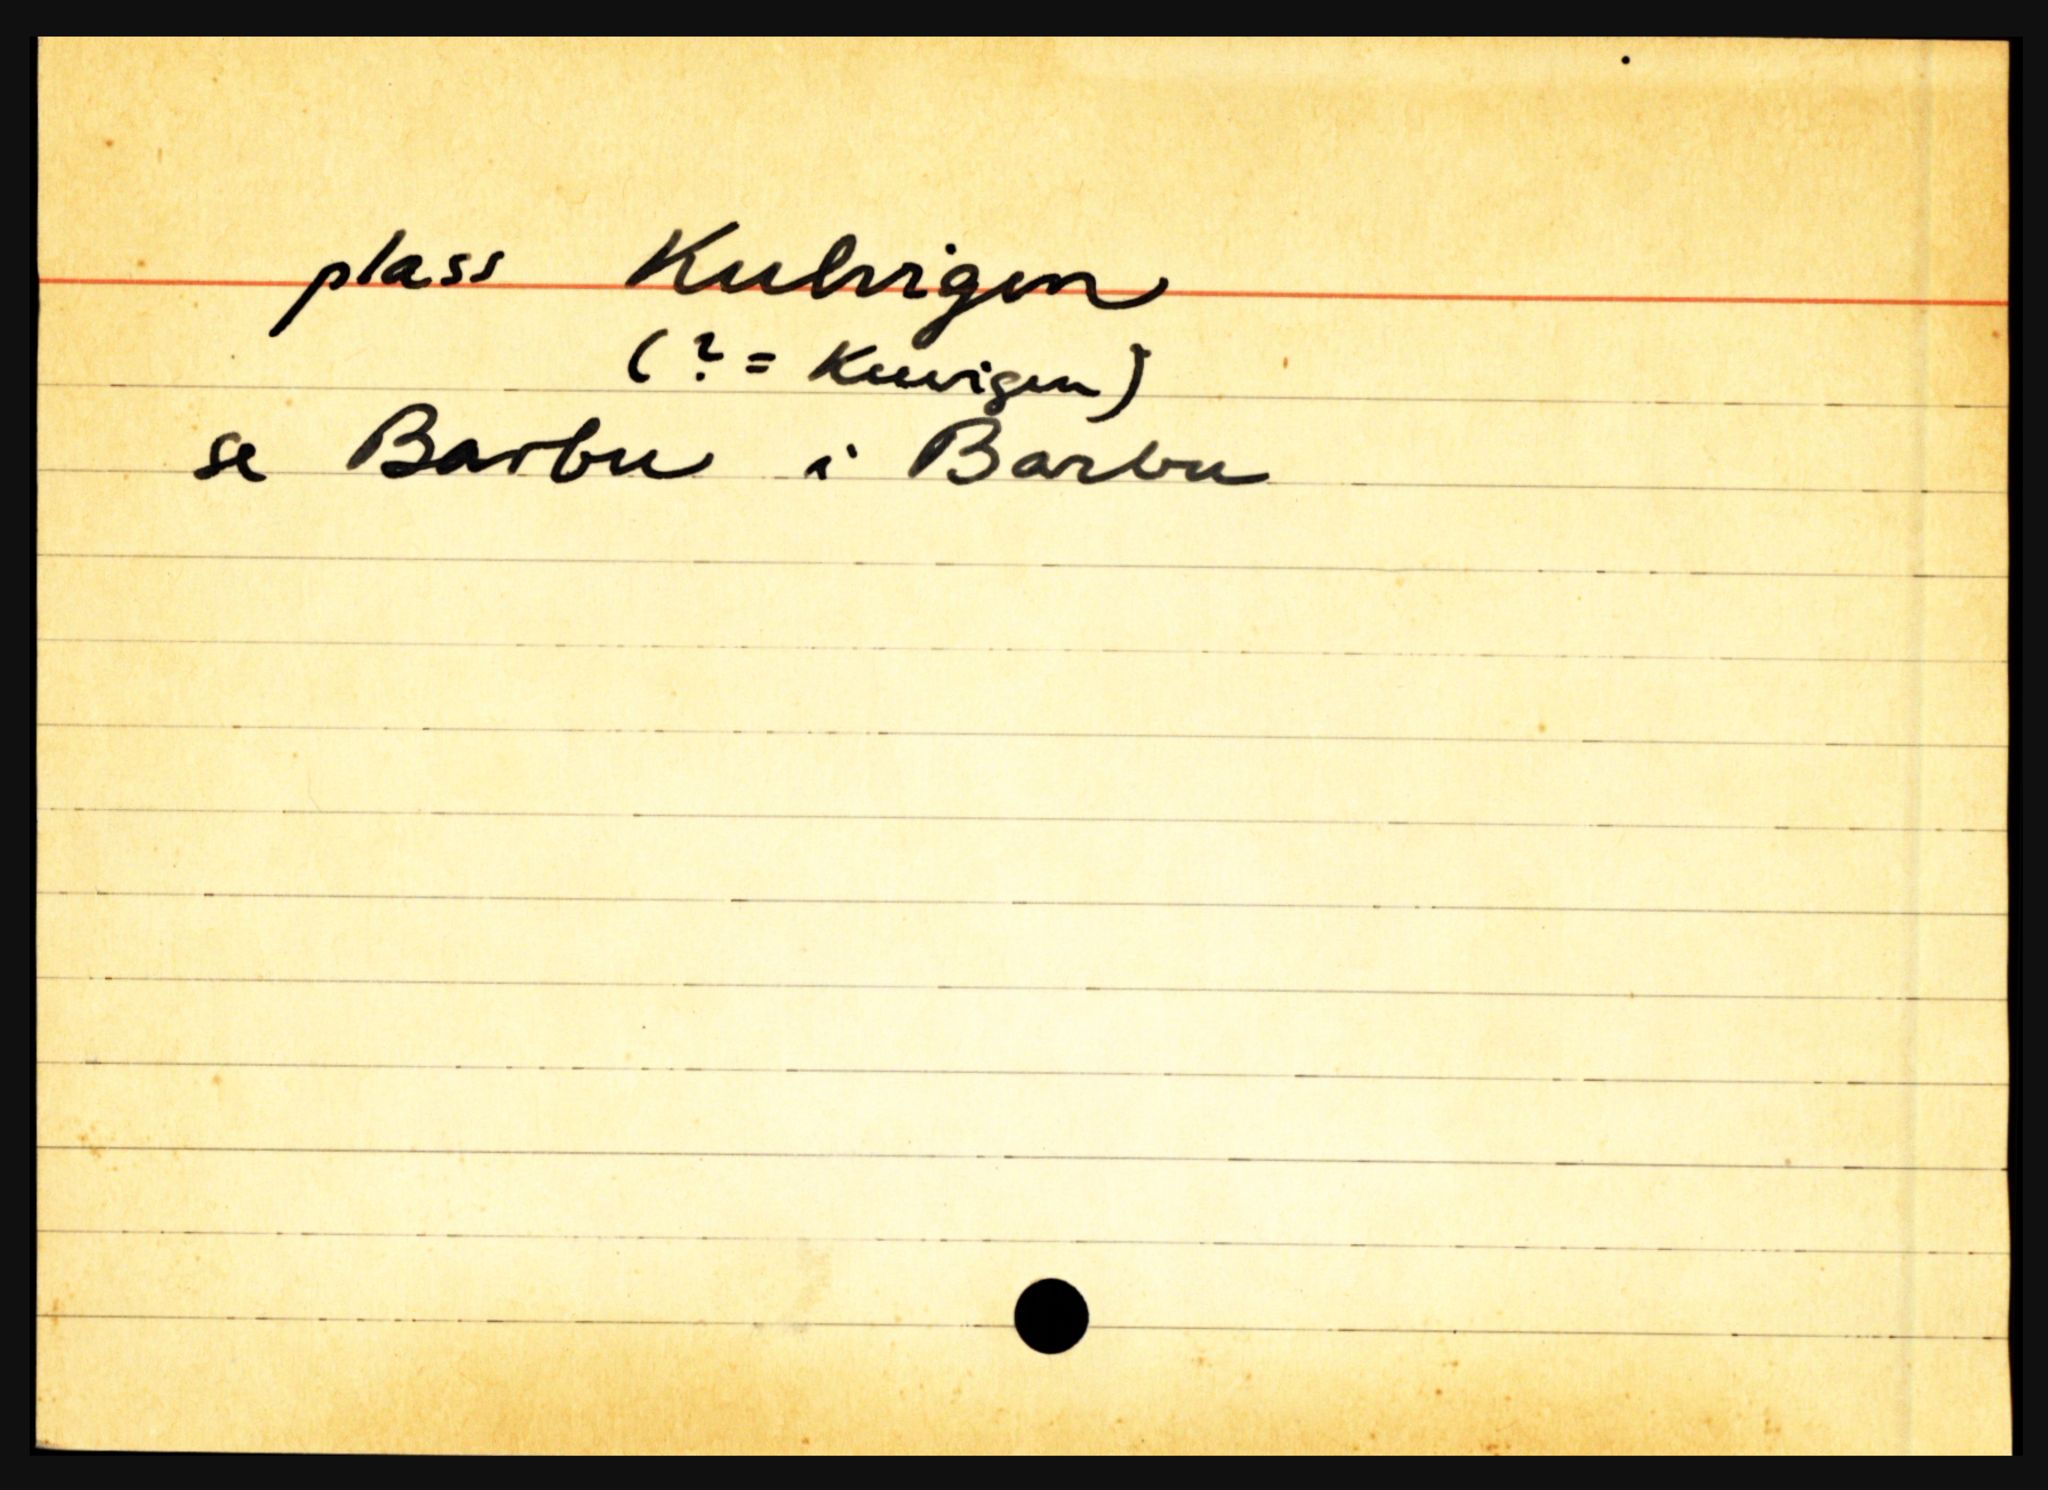 plass Kulvigen
(? = Kuvigen)
se Barbu i Barbu